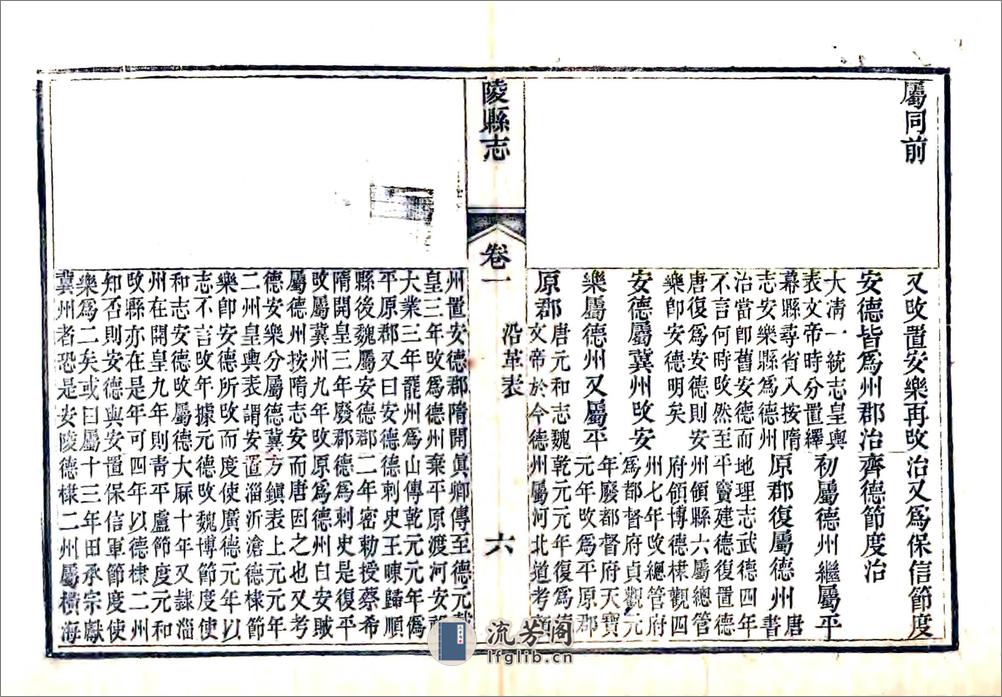 屬同前
又改置安樂再改
安德皆爲州郡治
大清一統志皇輿
表文帝時分置繹
幕縣尋省入按隋
志安樂縣爲德州
治當卽舊安德而
不言何時改然至
唐復爲安德則安
樂卽安德明矣
安德屬冀州改安
樂屬德州又屬平
原郡
唐元和志魏
文帝於今德州
治又爲保信節度
齊德節度治
初屬德州繼屬平
原郡復屬德州
唐書
地理志武德四年
平竇建德復置德
州領縣六屬總管
府領博德棣觀四
州七年改總管府
爲都督府貞觀元
年廢都督府天寶
元年改爲平原郡
乾元元年復爲
屬河北道考
陵縣志
卷一
沿革表
六
州置安德郡隋開
皇三年改爲德州
大業三年罷州爲
平原郡又曰安德
縣後魏屬安德郡
隋開皇三年廢郡
改屬冀州九年改
屬德州按隋志安
德安樂分屬德冀
二州皇輿表謂安
樂卽安德所改而
志不言改年據元
和志安德改屬德
州在開皇九年則
改縣亦在是年可
知否則安德與安
樂爲二矣或曰屬
冀州者恐是安陵
眞卿傳至德元載
棄平原渡河安祿
山傳乾元元年僞
德刺史王暕歸順
二年密勅授蔡希
德德刺史是復平
原爲德州自安賊
而唐因之也又考
方鎮表上元元年
置淄沂滄德棣節
度使廣德元年以
德改魏博節度使
大厤十年又隸淄
青平盧節度元和
四年以德棣二州
置保信軍節度使
十三年田承宗獻
德棣二州屬橫海
流芳閣
lfglib.cn